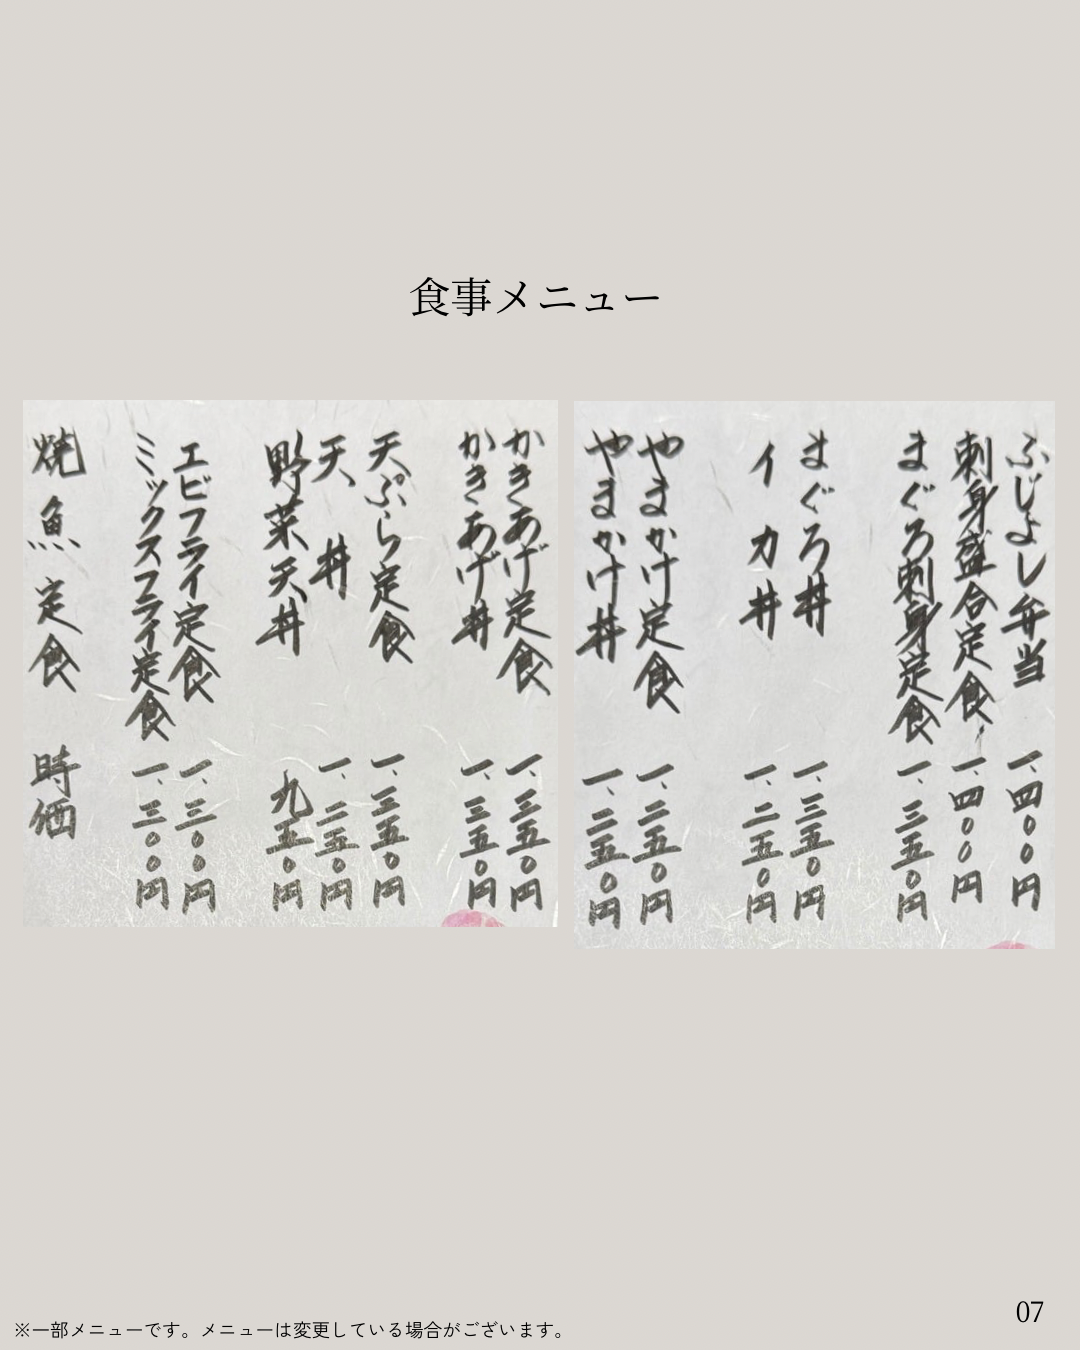 食事メニュー
ふじよし弁当 一、四〇〇円
刺身盛合定食 一、四〇〇円
まぐろ刺身定食 一、三五〇円
まぐろ丼 一、三五〇円
イカ丼 一、二五〇円
やまかけ定食 一、二五〇円
やまかけ丼 一、二五〇円
かきあげ定食 一、三五〇円
かきあげ丼 一、三五〇円
天ぷら定食 一、三五〇円
天丼 一、二五〇円
野菜天丼 九五〇円
エビフライ定食 一、三〇〇円
ミックスフライ定食 一、三〇〇円
焼魚定食 時価
※一部メニューです。メニューは変更している場合がございます。
07